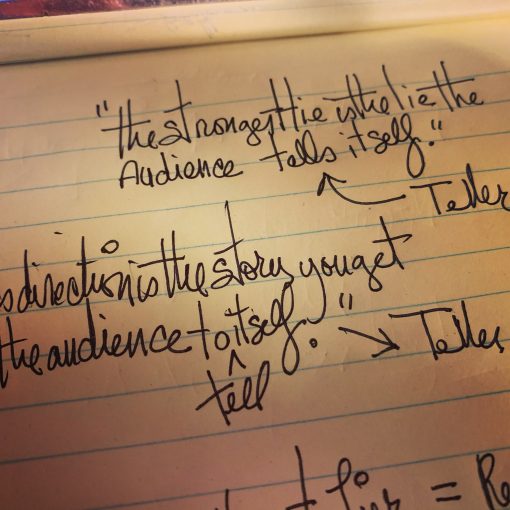 "the strongest lie is the lie the
Audience tells itself."
Teller
sdirection is the story you get
the audience to itself."
tell
Teller
= Re